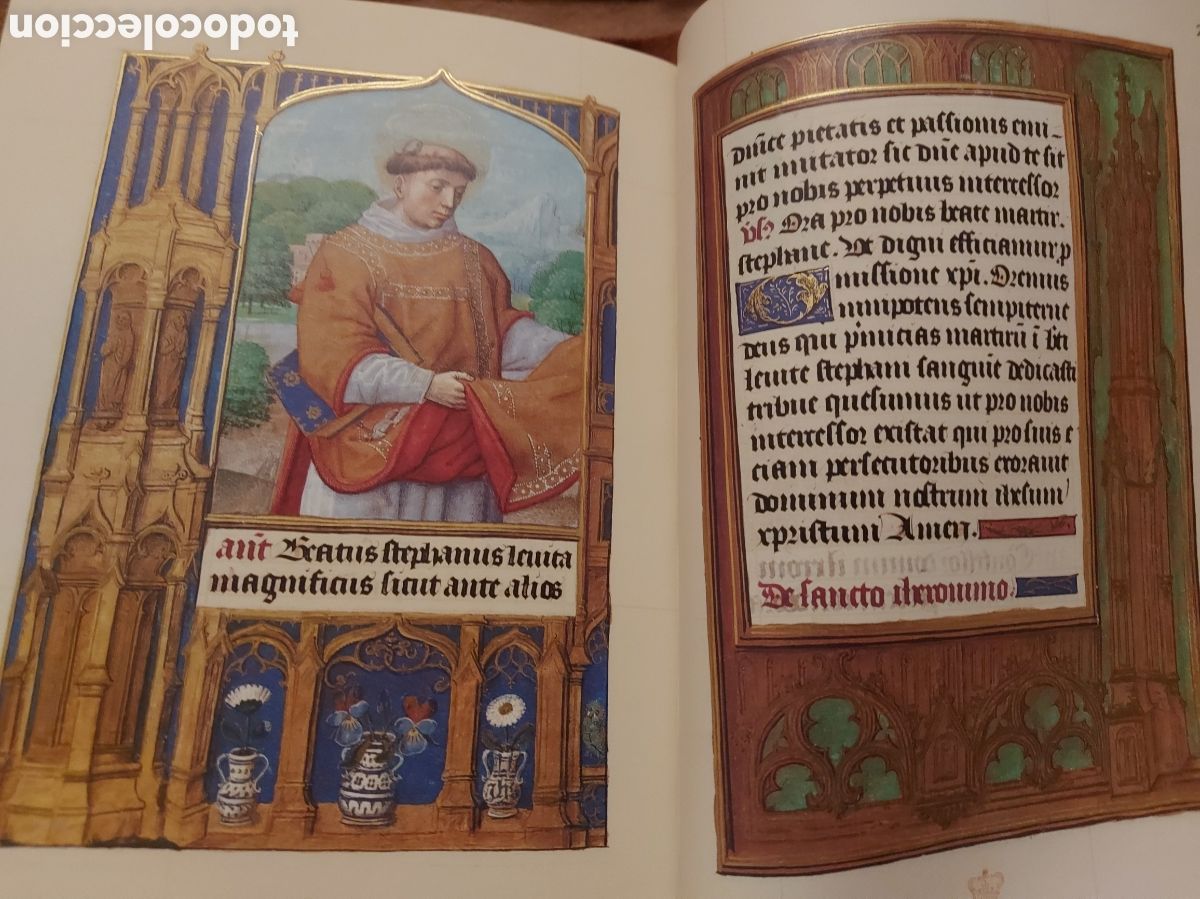 todocoleccion
ant Beatus stephanus levita
magnificus sicut ante alios
divīee pietatis et passionis emi-
nit imitator sic dūe apud te sit
pro nobis perpetuus intercessor
Ora pro nobis beate martir.
stephane. Ut digni efficiamur p
missione xp̄i. Oremus
Omnipotens sempiterne
deus qui p̄micias martirū ī bt̄i
levite stephani sanguīe dedicasti
tribue quesumus ut pro nobis
intercessor existat qui pro suis e
ciam persecutoribus exoravit
dominum nostrum ihesum
xpristum Amen.
De sancto iheronimo.